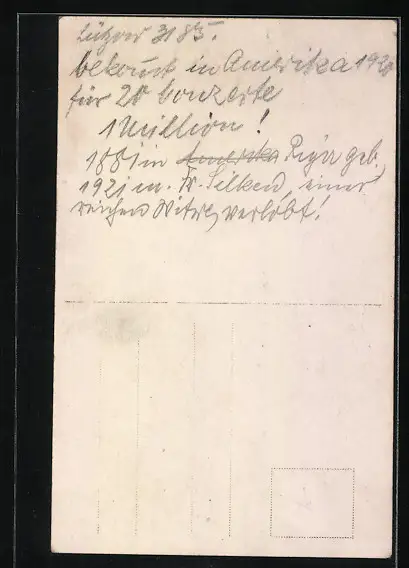 Lützow 3185.
bekommt in Amerika 1921
für 20 Conzerte
1 Million!
1881 in Amerika Riga geb.
1921 m. Fr. Silken, einer
reichen Witwe, verlobt!